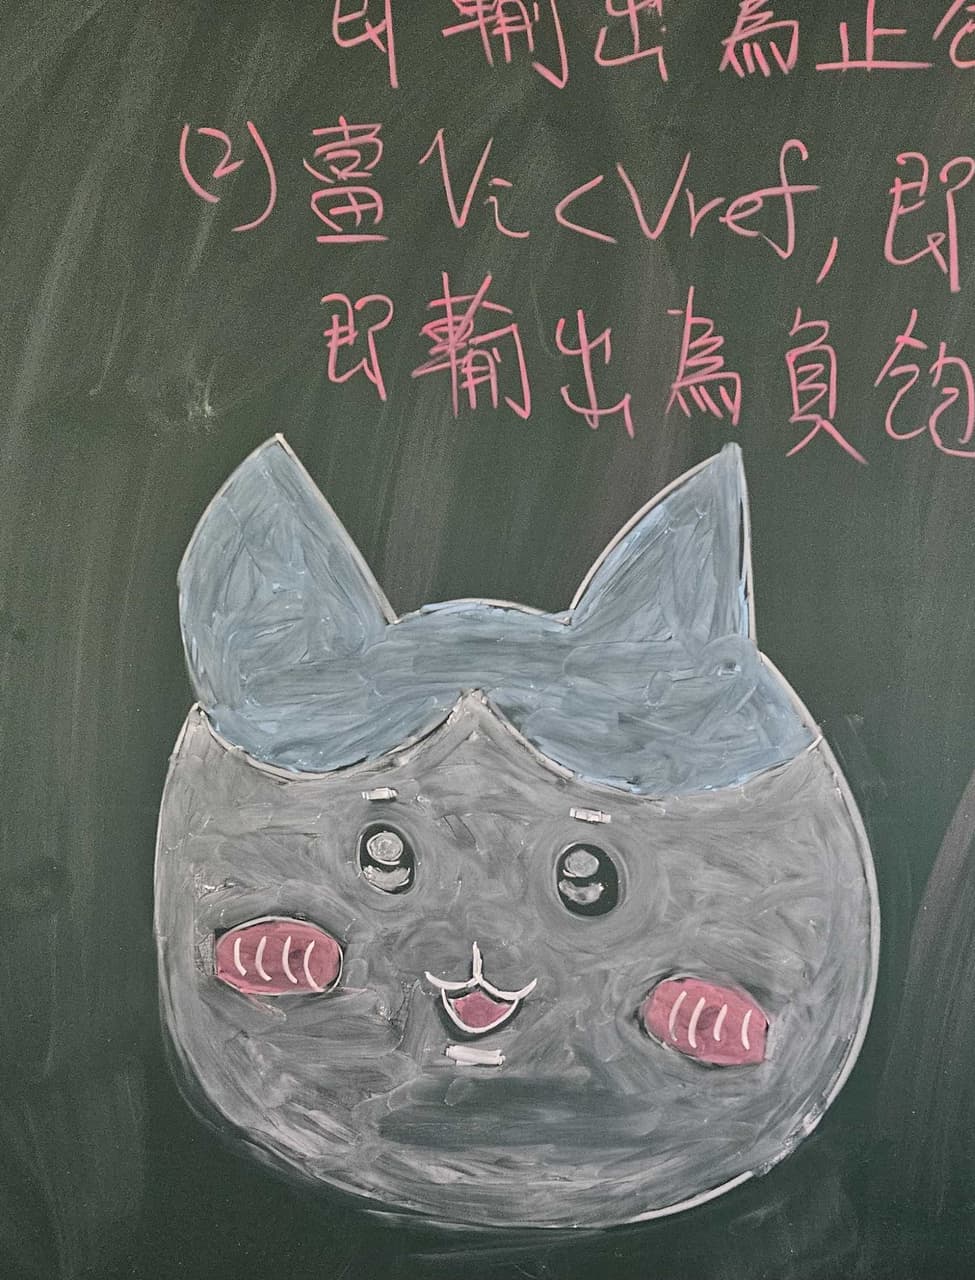 即輸出為正飽
(2)當Vi<Vref,即
即輸出為負飽